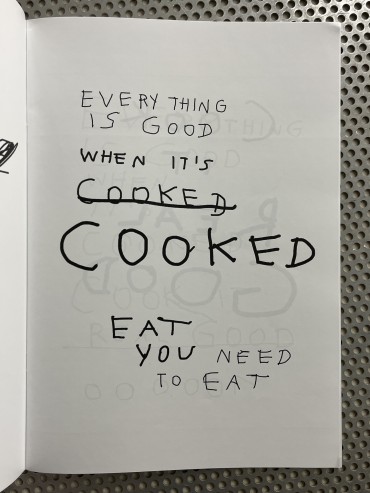 EVERY THING
IS GOOD
WHEN IT'S
COOKED
COOKED
EAT
YOU NEED
TO EAT